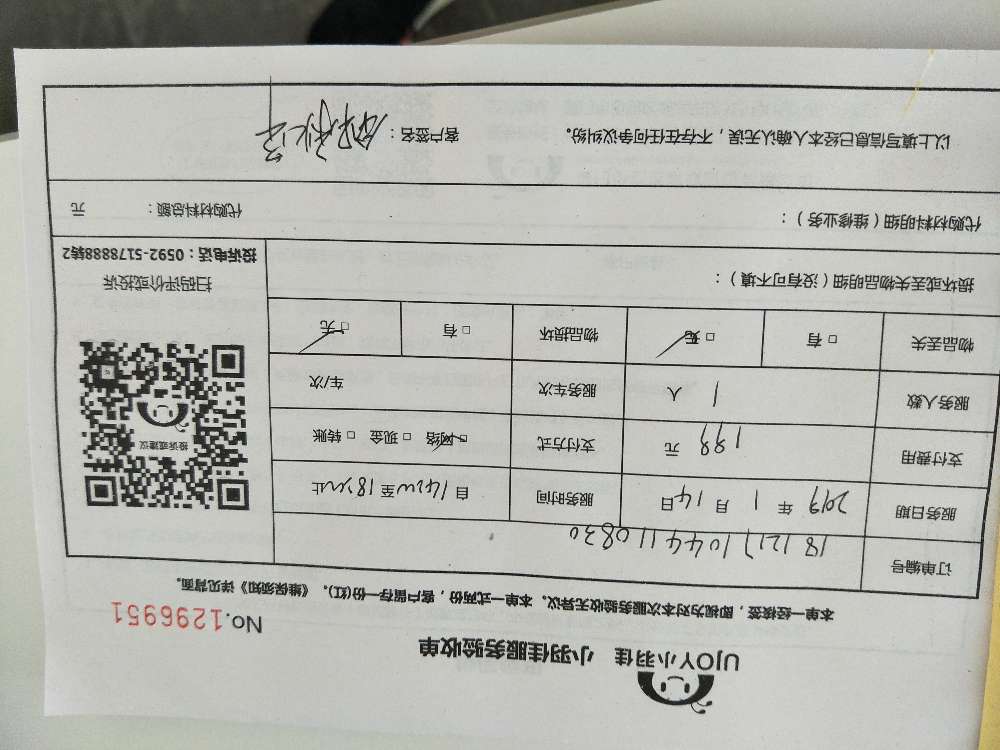 UJOY小羽佳 小羽佳服务验收单
No.1296951
本单一经接签，即视为对本次服务验收无异议。本单一式两份，客户留存一份(红)。《维保须知》详见背面。
订单编号 181217104411 0830
服务日期 2019 年 1 月 14 日 服务时间 自 14:00 至 18:00 止
支付费用 198 元 支付方式 □网络 □现金 □转账
服务人数 1 人 服务车次 车/次
物品丢失 □有 □无 物品损坏 □有 □无
损坏或丢失物品明细（没有可不填）：
投诉或建议
扫码评价或投诉
投诉电话：0592-5178888转2
代购材料明细（维修业务）： 代购材料总额： 元
以上填写信息已经本人确认无误，不存在任何争议纠纷。 客户签名：